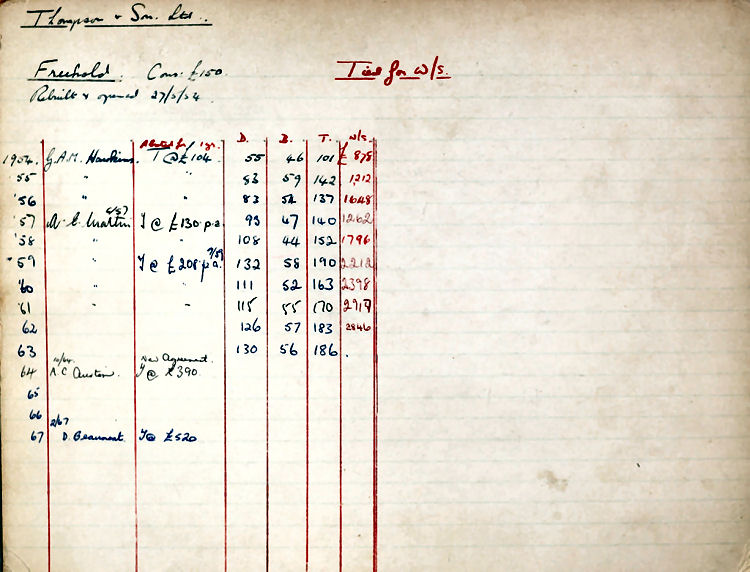 Thompson & Son. Ltd.
Freehold. Cons: £150.
Tied for W/S.
Rebuilt & opened 27/5/54.
for 1 yr. D. B. T. W/S.
1954. G.A.M. Hawkins. T @ £104. 55 46 101 £ 875
'55 " " 83 59 142 1212
'56 " " 83 54 137 1648
'57 A. C. Martin 6/57 T @ £130 p.a. 93 47 140 1262
'58 " " 108 44 152 1796
'59 " T @ £208 p.a. 7/59 132 58 190 2212
'60 " " 111 52 163 2398
'61 " " 115 55 170 2917
62 126 57 183 2846
63 130 56 186.
10/64. New Agreement.
64 A. C. Austin. T @ £390.
65
66
2/67
67 D. Beaumont T @ £520